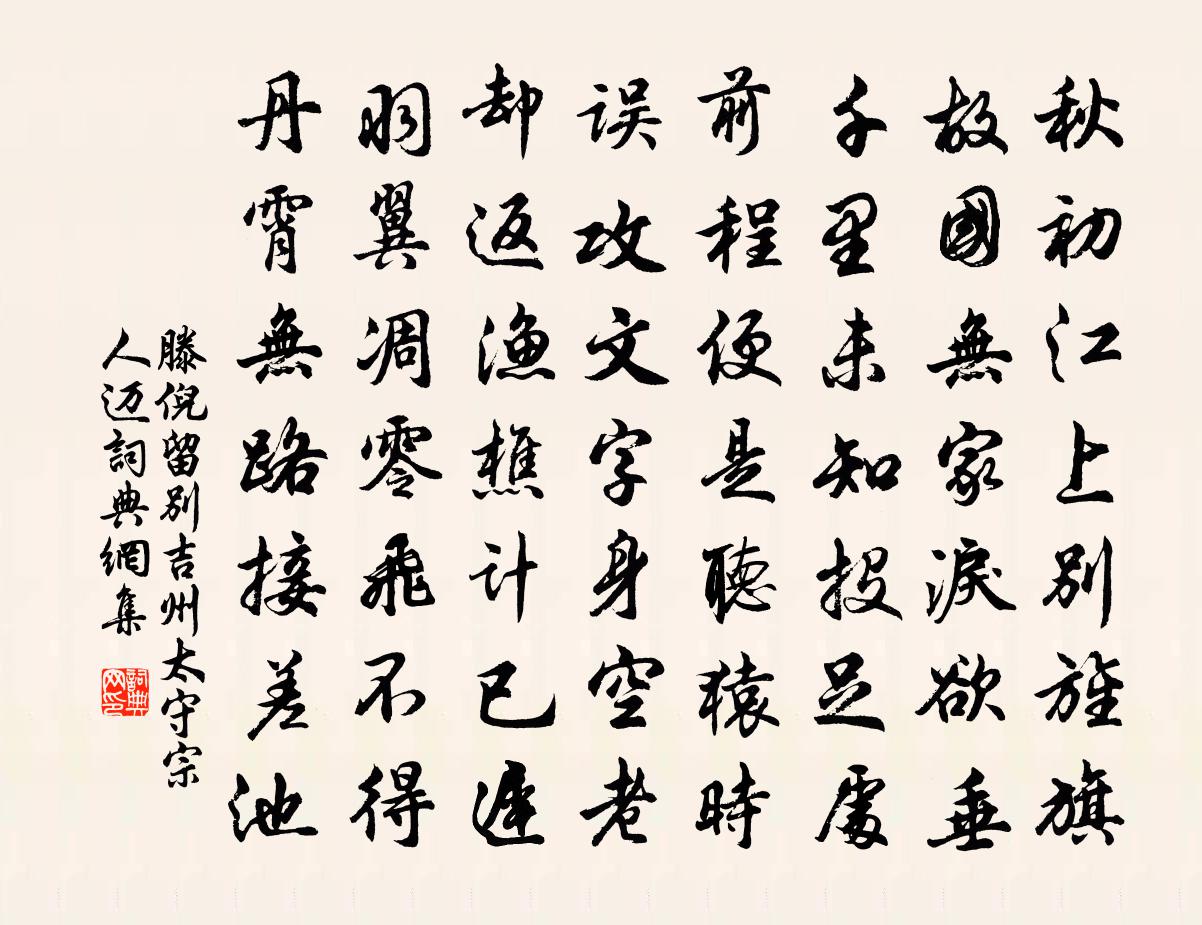 秋初江上別旌旗
故國無家淚欲垂
千里未知投足處
前程便是聽猿時
误攻文字身空老
却返渔樵计已遲
羽翼凋零飛不得
丹霄無路接差池
滕倪留別吉州太守宗
人迈詞典網集
詞典
网印